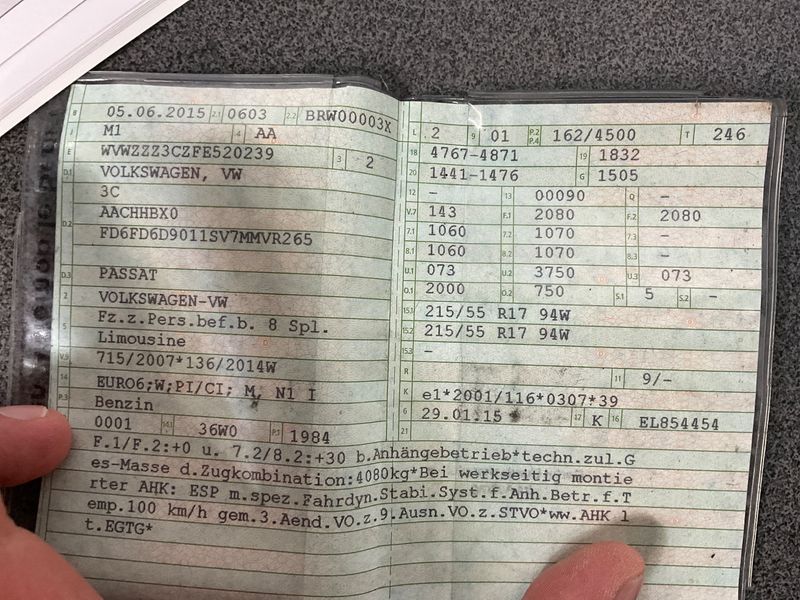 B 05.06.2015 2.1 0603 2.2 BRW00003X
J M1 4 AA
E WVWZZZ3CZFE520239 3 2
D.1 VOLKSWAGEN, VW
3C
D.2 AACHHBX0
FD6FD6D9011SV7MMVR265
D.3 PASSAT
2 VOLKSWAGEN-VW
5 Fz.z.Pers.bef.b. 8 Spl.
Limousine
V.9 715/2007*136/2014W
14 EURO6;W;PI/CI; M, N1 I
P.3 Benzin
0001 14.1 36W0 P.1 1984
L 2 9 01 P.2 P.4 162/4500 T 246
18 4767-4871 19 1832
20 1441-1476 G 1505
12 - 13 00090 Q -
V.7 143 F.1 2080 F.2 2080
7.1 1060 7.2 1070 7.3 -
8.1 1060 8.2 1070 8.3 -
U.1 073 U.2 3750 U.3 073
O.1 2000 O.2 750 S.1 5 S.2 -
15.1 215/55 R17 94W
15.2 215/55 R17 94W
15.3 -
R 11 9/-
K e1*2001/116*0307*39
6 29.01.15 17 K 16 EL854454
21
F.1/F.2:+0 u. 7.2/8.2:+30 b.Anhängebetrieb*techn.zul.G
es-Masse d.Zugkombination:4080kg*Bei werkseitig montie
rter AHK: ESP m.spez.Fahrdyn.Stabi.Syst.f.Anh.Betr.f.T
emp.100 km/h gem.3.Aend.VO.z.9.Ausn.VO.z.STVO*ww.AHK l
t.EGTG*